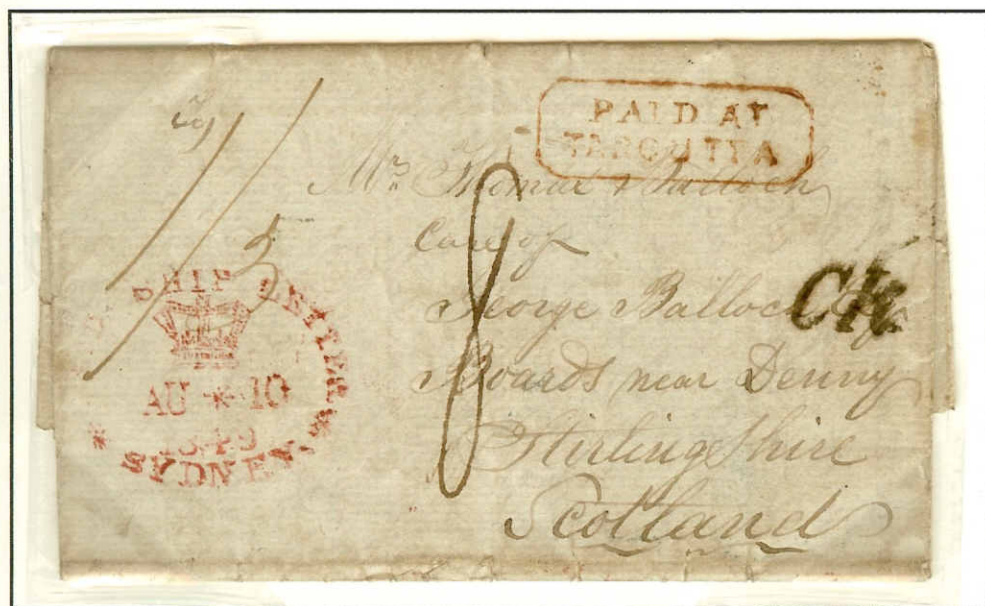 PAID AT
TARCUTTA
Mr Thomas Balloch
Care of
George Balloch
Boards near Denny
Stirlingshire
Scotland
8
1/5
SHIP LETTER
AU * 10
1849
* SYDNEY. *
Ck